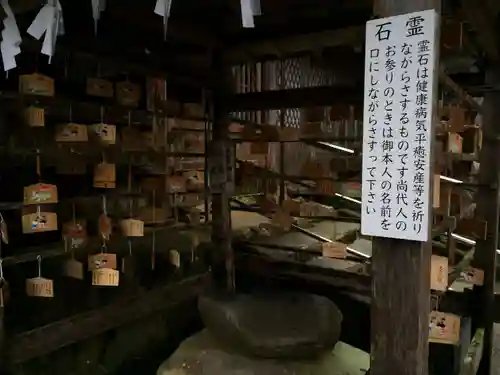 霊石
霊石は健康病気平癒安産等を祈り
ながらさするものです尚代人の
お参りのときは御本人の名前を
口にしながらさすって下さい